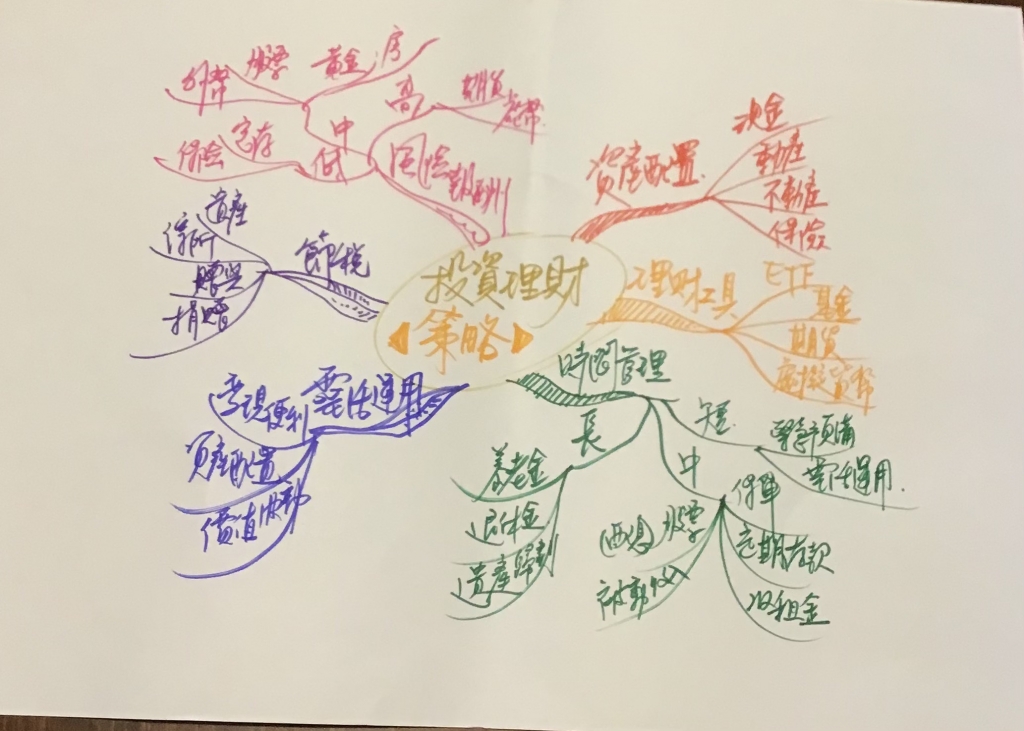 投資理財
策略
資產配置
現金
動產
不動產
保險
理財工具
ETF
基金
期貨
虛擬貨幣
時間管理
短
緊急預備
靈活運用
中
保單
定期存款
收租金
配息股票
被動收入
長
養老金
退休金
遺產規劃
靈活運用
變現便利
資產配置
價值波動
節稅
遺產
贈與
捐贈
風險報酬
高
期貨
虛幣
中
房
黃金
股票
外幣
低
定存
保險